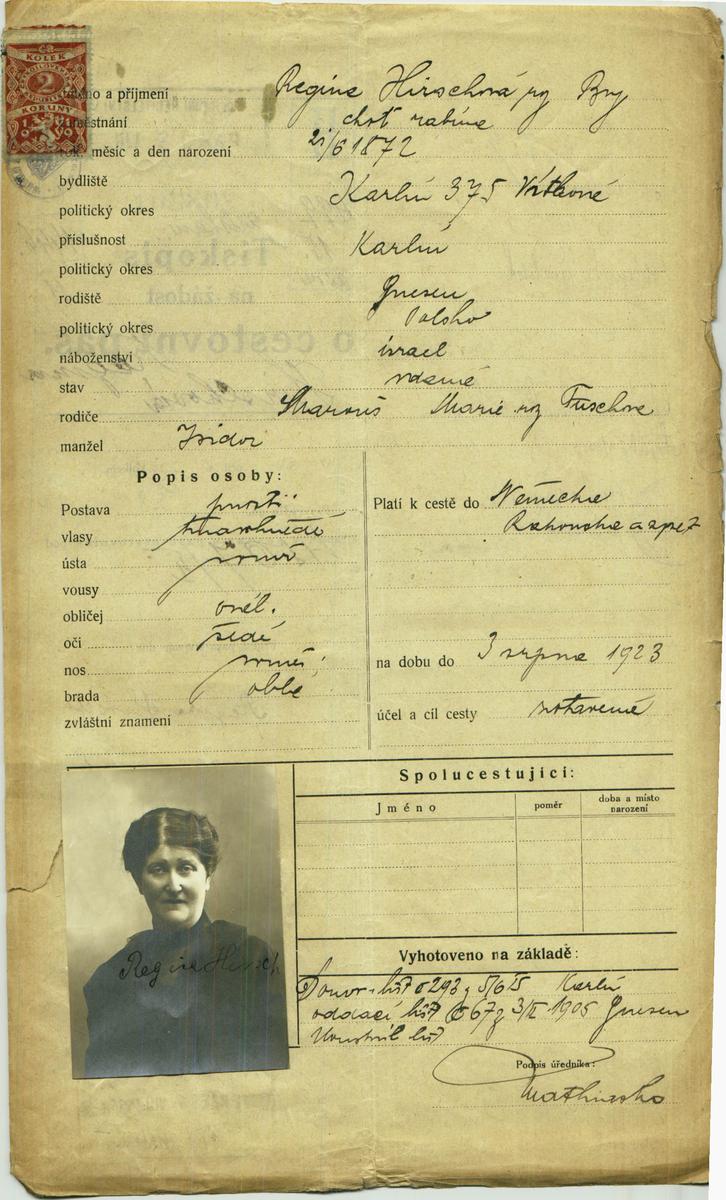 KOLEK
2
KORUNY
1919
Jméno a příjmení Regine Hirschová roz Bry
zaměstnání choť rabína
rok, měsíc a den narození 21/6 1872
bydliště Karlín 375 Vítkově
politický okres
příslušnost Karlín
politický okres
rodiště Gnesen
politický okres Polsko
náboženství israel
stav vdaná
rodiče Marie roz
manžel Isidor
Popis osoby:
Postava
vlasy tmavohnědé
ústa
vousy
obličej ovál.
oči šedé
nos
brada oblá
zvláštní znamení
Platí k cestě do Německa
Rakouska a zpět
na dobu do 3 srpna 1923
účel a cíl cesty zotavená
Spolucestující:
Jméno poměr doba a místo narození
Regine Hirsch
Vyhotoveno na základě:
Domov. list Karlín
oddací list 1905 Gnesen
list
Podpis úředníka: